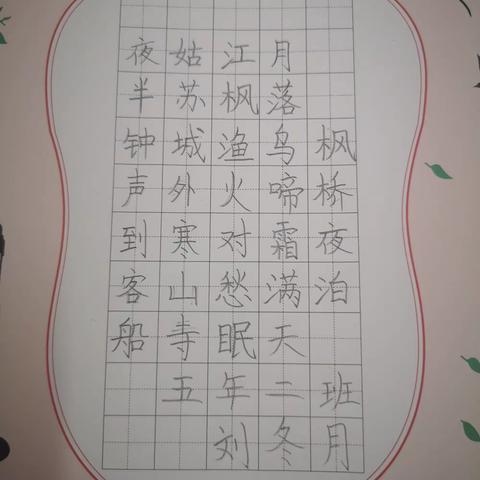 枫桥夜泊
月落鸟啼霜满天
江枫渔火对愁眠
姑苏城外寒山寺
夜半钟声到客船
五年二班
刘冬月